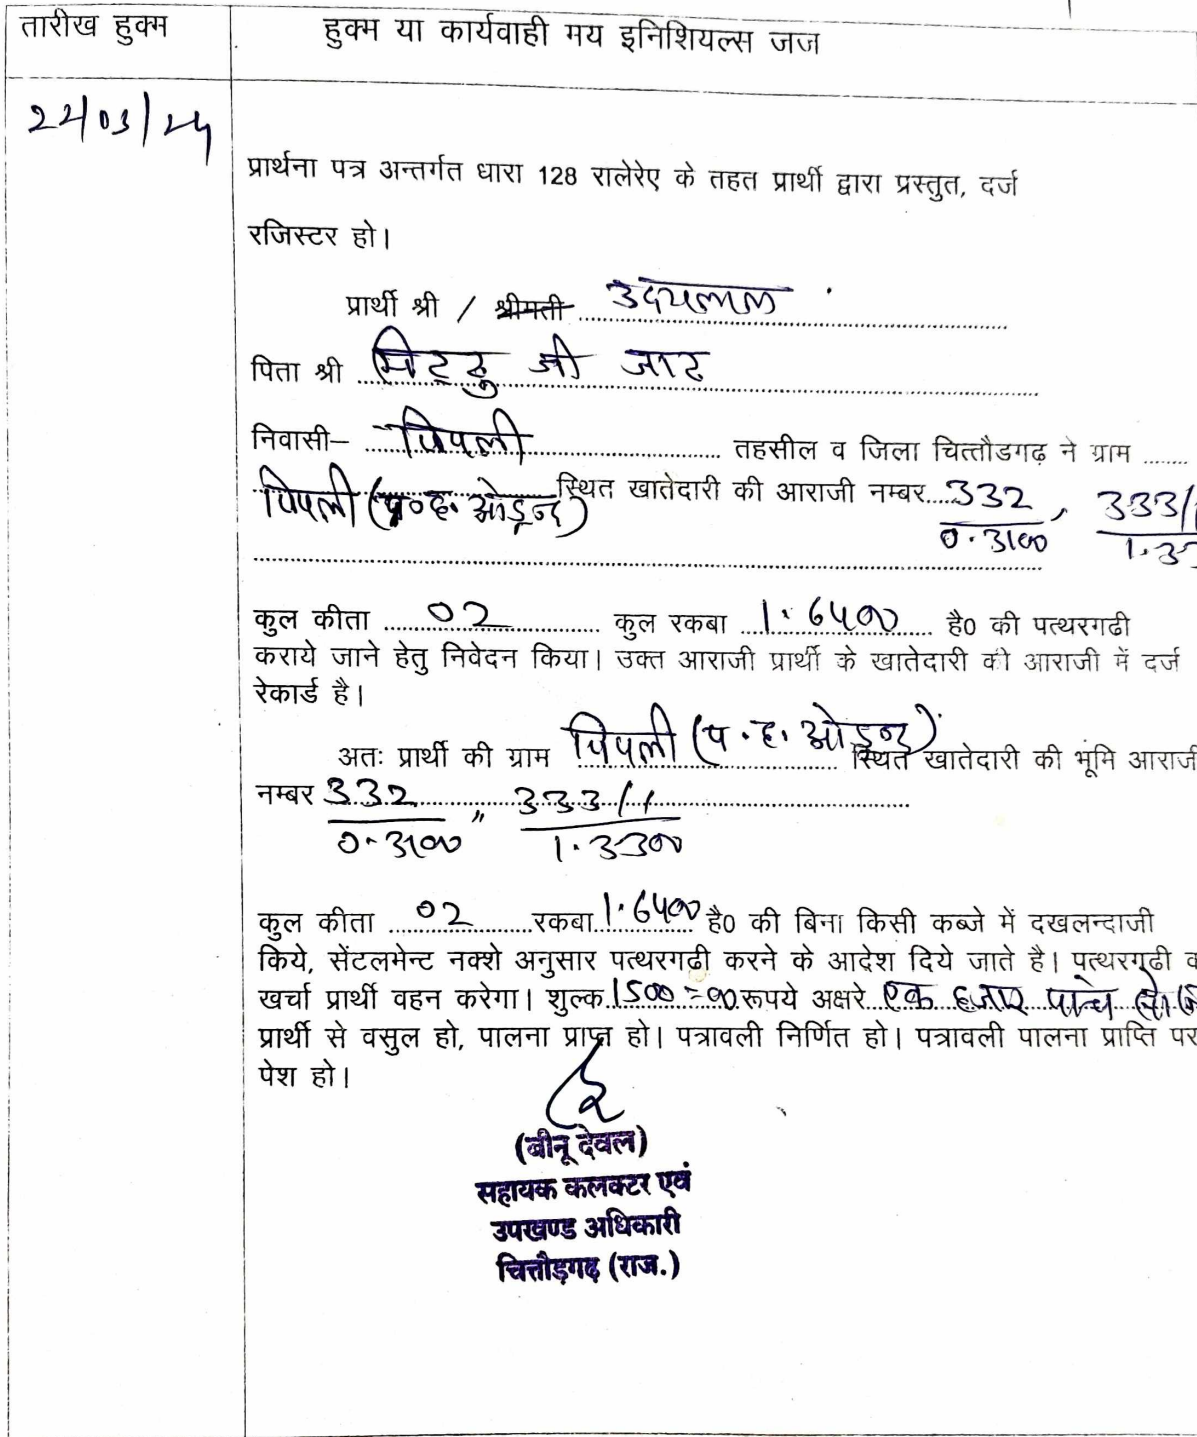 तारीख हुक्म
हुक्म या कार्यवाही मय इनिशियल्स जज
22/03/24
प्रार्थना पत्र अन्तर्गत धारा 128 रालेरेए के तहत प्रार्थी द्वारा प्रस्तुत, दर्ज
रजिस्टर हो।
प्रार्थी श्री / श्रीमती उदयलाल
पिता श्री मिट्ठु जी जाट
निवासी– पिपली तहसील व जिला चित्तौडगढ़ ने ग्राम
पिपली (प०ह. ओड़न्द) स्थित खातेदारी की आराजी नम्बर 332, 333/1
0.3100 1.33
कुल कीता 02 कुल रकबा 1.6400 है0 की पत्थरगढी
कराये जाने हेतु निवेदन किया। उक्त आराजी प्रार्थी के खातेदारी की आराजी में दर्ज
रेकार्ड है।
अतः प्रार्थी की ग्राम पिपली (प.ह. ओड़न्द) स्थित खातेदारी की भूमि आराजी
नम्बर 332 ,, 333/1
0.3100 1.3300
कुल कीता 02 रकबा 1.6400 है0 की बिना किसी कब्जे में दखलन्दाजी
किये, सेंटलमेन्ट नक्शे अनुसार पत्थरगढी करने के आदेश दिये जाते है। पत्थरगढी
खर्चा प्रार्थी वहन करेगा। शुल्क 1500=00 रूपये अक्षरे एक हजार पान्च सो
प्रार्थी से वसुल हो, पालना प्राप्त हो। पत्रावली निर्णित हो। पत्रावली पालना प्राप्ति पर
पेश हो।
(बीनू देवल)
सहायक कलक्टर एवं
उपखण्ड अधिकारी
चित्तौड़गढ़ (राज.)